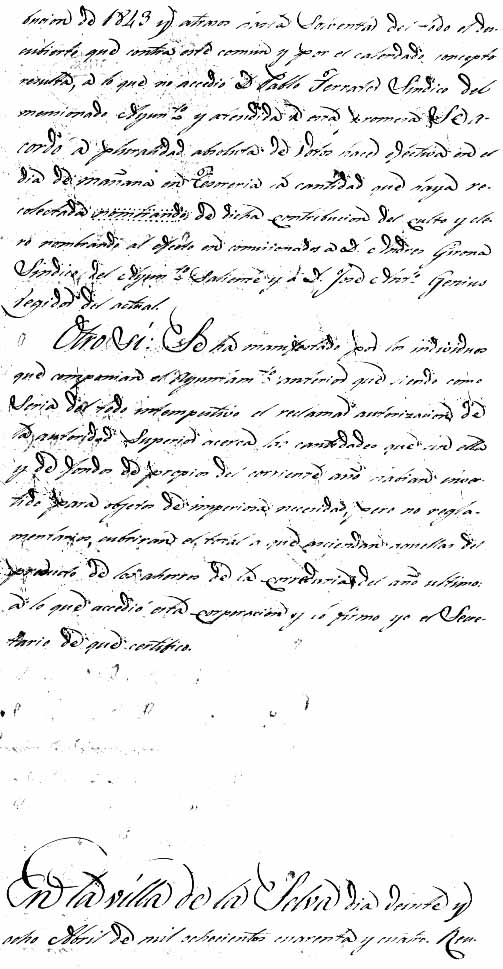 bucion de 1843 y atrasos hasta solventar del todo el des-
cubierto que contra este comun y por el calendado concepto
resulta, a lo que no accedió D. Pablo Ferrater Sindico del
mencionado Ayunto. y atendida a esta promesa Se a-
cordó a pluralidad absoluta de votos hacer efectiva en el
dia de mañana en Tesoreria la cantidad que haya re-
colectada de dicha contribucion del culto y cle-
ro nombrando al efecto en comicionados a D. Andres Girona
Sindico del Ayunto. Saliente y á D. José Anto. Genius
Regidor del actual.
Otro Sí: Se ha manifestado por los individuos
que componian el Ayuntamto. anterior que siendo como
Seria del todo intempestivo el reclamar autorizacion de
la autoridad Superior acerca las cantidades que sin ella
y de fondos de propios del corriente año habian inver-
tido para objetos de imperiosa necesidad, pero no regla-
mentarios, cubririan el total a que asciendan aquellas del
producto de los ahorros de la del año ultimo:
a lo que accedió esta corporacion y lo firmo yo el Secre-
tario de que certifico.
En la villa de la Selva dia veinte y
ocho Abril de mil ochocientos cuarenta y cuatro. Reu-